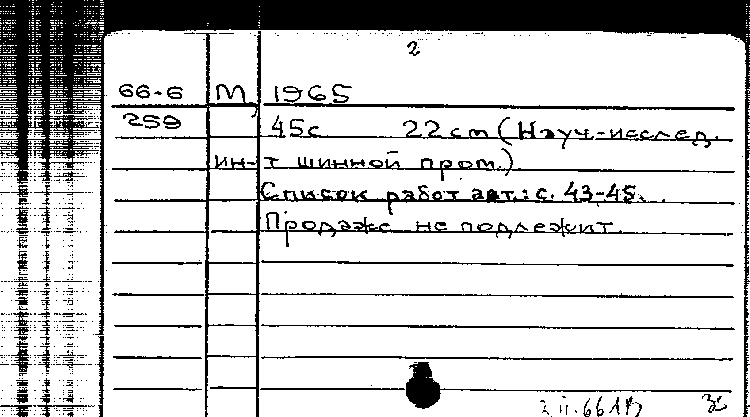 2
66-6 М, 1965
259 45с 22см (Науч.-исслед.
ин-т шинной пром.)
Список работ авт.: с. 43-45.
Продаже не подлежит.